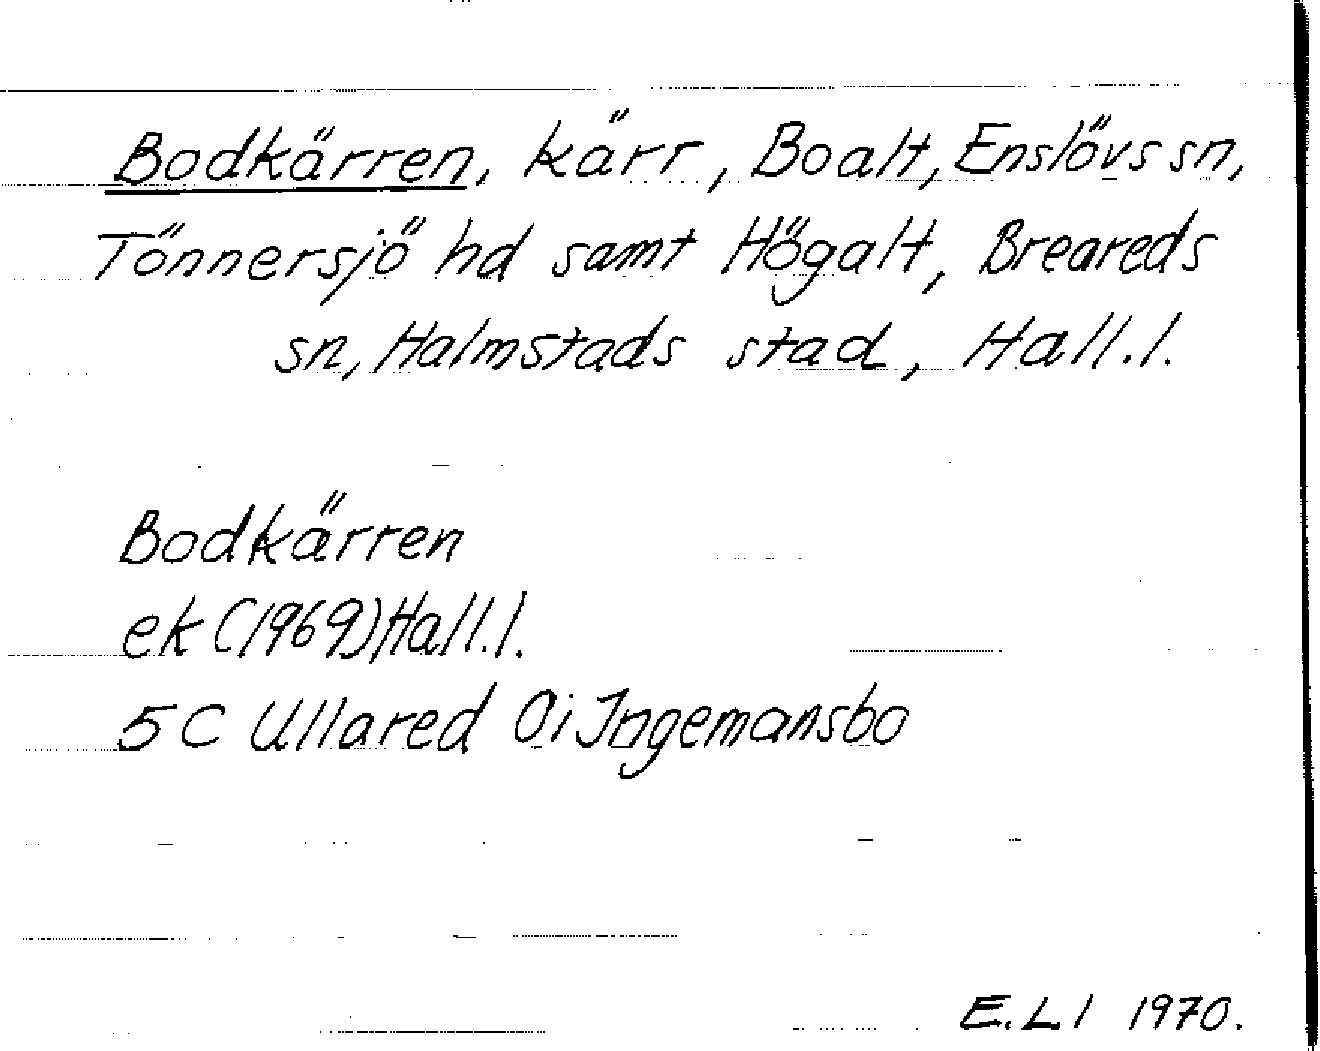 Bodkärren, kärr, Boalt, Enslövs sn,
Tönnersjö hd samt Högalt, Breareds
sn, Halmstads stad, Hall.l.
Bodkärren
ek (1969) Hall.l.
5C Ullared 0i Ingemansbo
E.L l 1970.